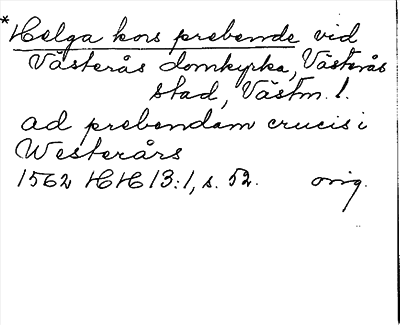 *Helga kors prebende vid
Västerås domkyrka, Västerås
stad, Västm. l.
ad prebendam crucis i
Westerårs
1562 HH 13:1, s. 52. orig.